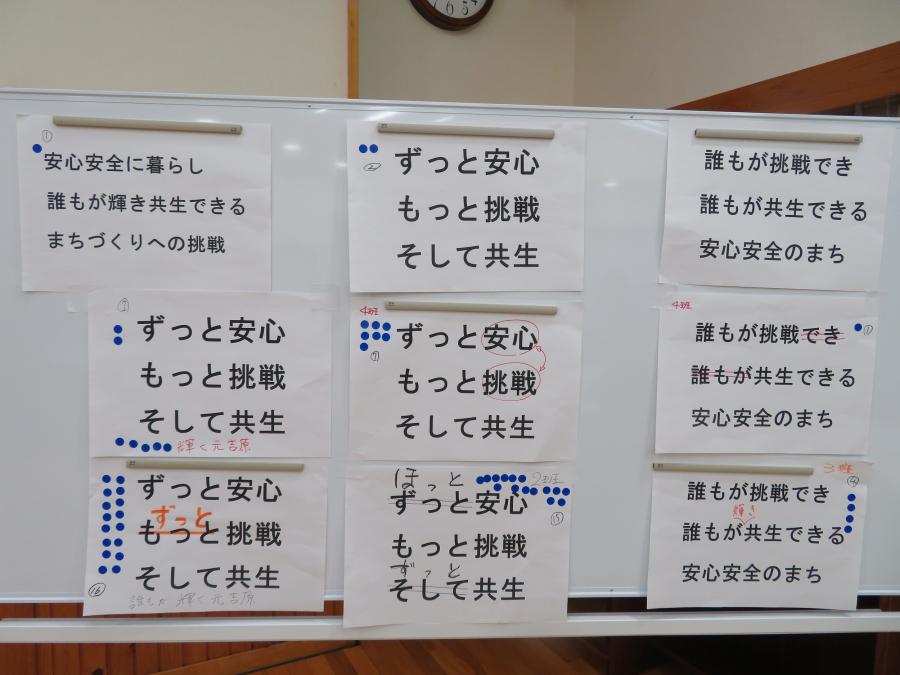 6 5 4
①
安心安全に暮らし
誰もが輝き共生できる
まちづくりへの挑戦
②
ずっと安心
もっと挑戦
そして共生
誰もが挑戦でき
誰もが共生できる
安心安全のまち
⑦
ずっと安心
もっと挑戦
そして共生
輝く元吉原
4班
⑦
ずっと安心
もっと挑戦
そして共生
4班
①
誰もが挑戦でき
誰もが共生できる
安心安全のまち
ずっと安心
ずっと
もっと挑戦
そして共生
⑯
誰もが輝く元吉原
ほっと
2班
ずっと安心
⑮
もっと挑戦
ずっと
そして共生
3班
④
誰もが挑戦でき
輝き
誰もが共生できる
安心安全のまち